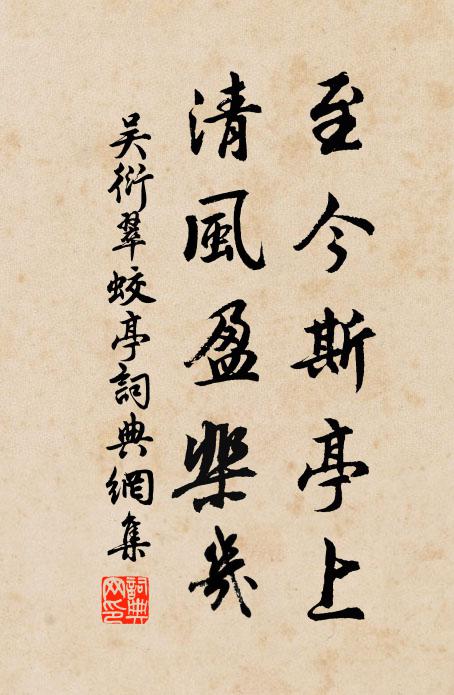 至今斯亭上
清風盈棐幾
吴衍翠蛟亭詞典網集
詞典
网印